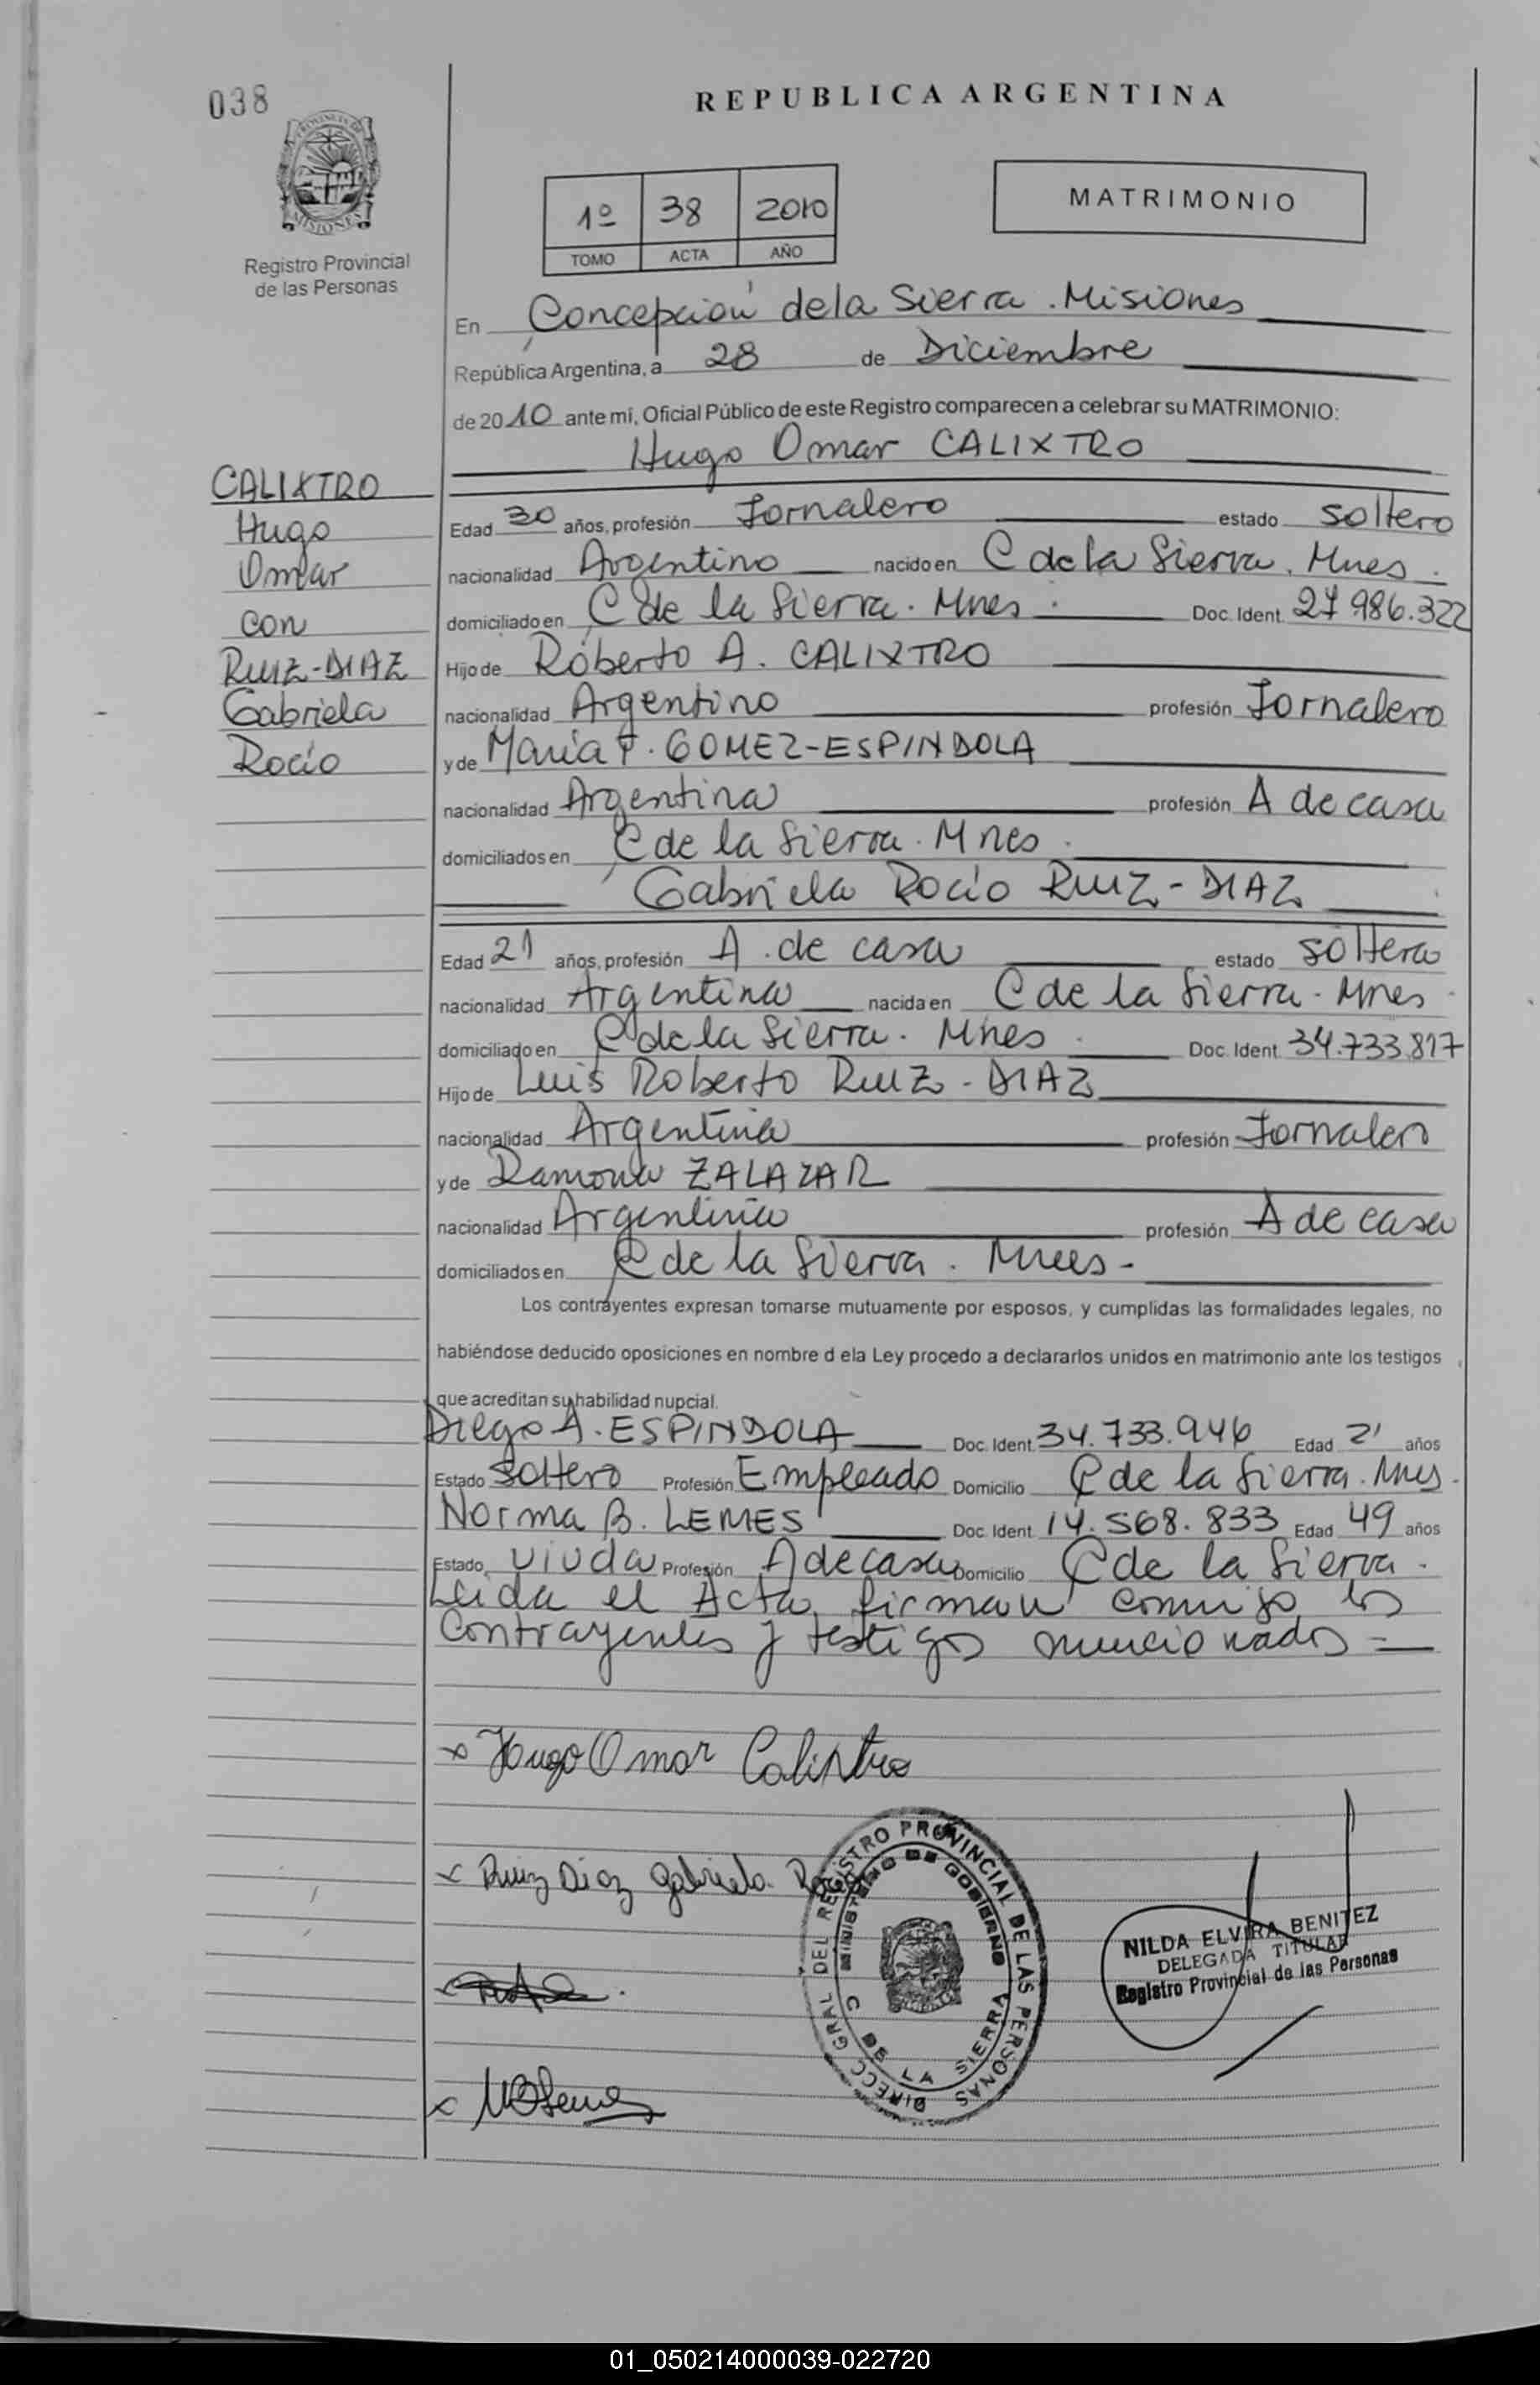 038
REPUBLICA ARGENTINA
PROVINCIA DE MISIONES
Registro Provincial
de las Personas
1º 38 2010
TOMO ACTA AÑO
MATRIMONIO
En Concepción de la Sierra . Misiones
República Argentina, a 28 de Diciembre
de 2010 ante mí, Oficial Público de este Registro comparecen a celebrar su MATRIMONIO:
Hugo Omar CALIXTRO
CALIXTRO
Hugo
Omar
con
RUIZ-DIAZ
Gabriela
Rocío
Edad 30 años, profesión Jornalero estado soltero
nacionalidad Argentino nacido en C de la Sierra. Mnes.
domiciliado en C de la Sierra. Mnes. Doc. Ident. 27 986.322
Hijo de Roberto A. CALIXTRO
nacionalidad Argentino profesión Jornalero
y de María F. GOMEZ-ESPINDOLA
nacionalidad Argentina profesión A de casa
domiciliados en C de la Sierra. Mnes.
Gabriela Rocío RUIZ-DIAZ
Edad 21 años, profesión A. de casa estado soltera
nacionalidad Argentina nacida en C de la Sierra - Mnes.
domiciliado en C de la Sierra. Mnes. Doc. Ident. 34.733.817
Hijo de Luis Roberto RUIZ-DIAZ
nacionalidad Argentina profesión Jornalero
y de Ramona ZALAZAR
nacionalidad Argentina profesión A de casa
domiciliados en C de la Sierra. Mnes-
Los contrayentes expresan tomarse mutuamente por esposos, y cumplidas las formalidades legales, no
habiéndose deducido oposiciones en nombre d ela Ley procedo a declararlos unidos en matrimonio ante los testigos
que acreditan su habilidad nupcial.
Diego A. ESPINDOLA Doc. Ident. 34.733.946 Edad 21 años
Estado soltero Profesión Empleado Domicilio C de la Sierra. Mnes.
Norma B. LEMES Doc. Ident. 14.568.833 Edad 49 años
Estado viuda Profesión A de casa Domicilio C de la Sierra.
Leida el Acta, firman conmigo los
contrayentes y testigos mencionados =
x Hugo Omar Calixtro
x Ruiz Diaz Gabriela Rocio
DIRECC GRAL DEL REGISTRO PROVINCIAL DE LAS PERSONAS
MINISTERIO DE GOBIERNO
C DE LA SIERRA
NILDA ELVIRA BENITEZ
DELEGADA TITULAR
Registro Provincial de las Personas
x NBLemes
01_050214000039-022720